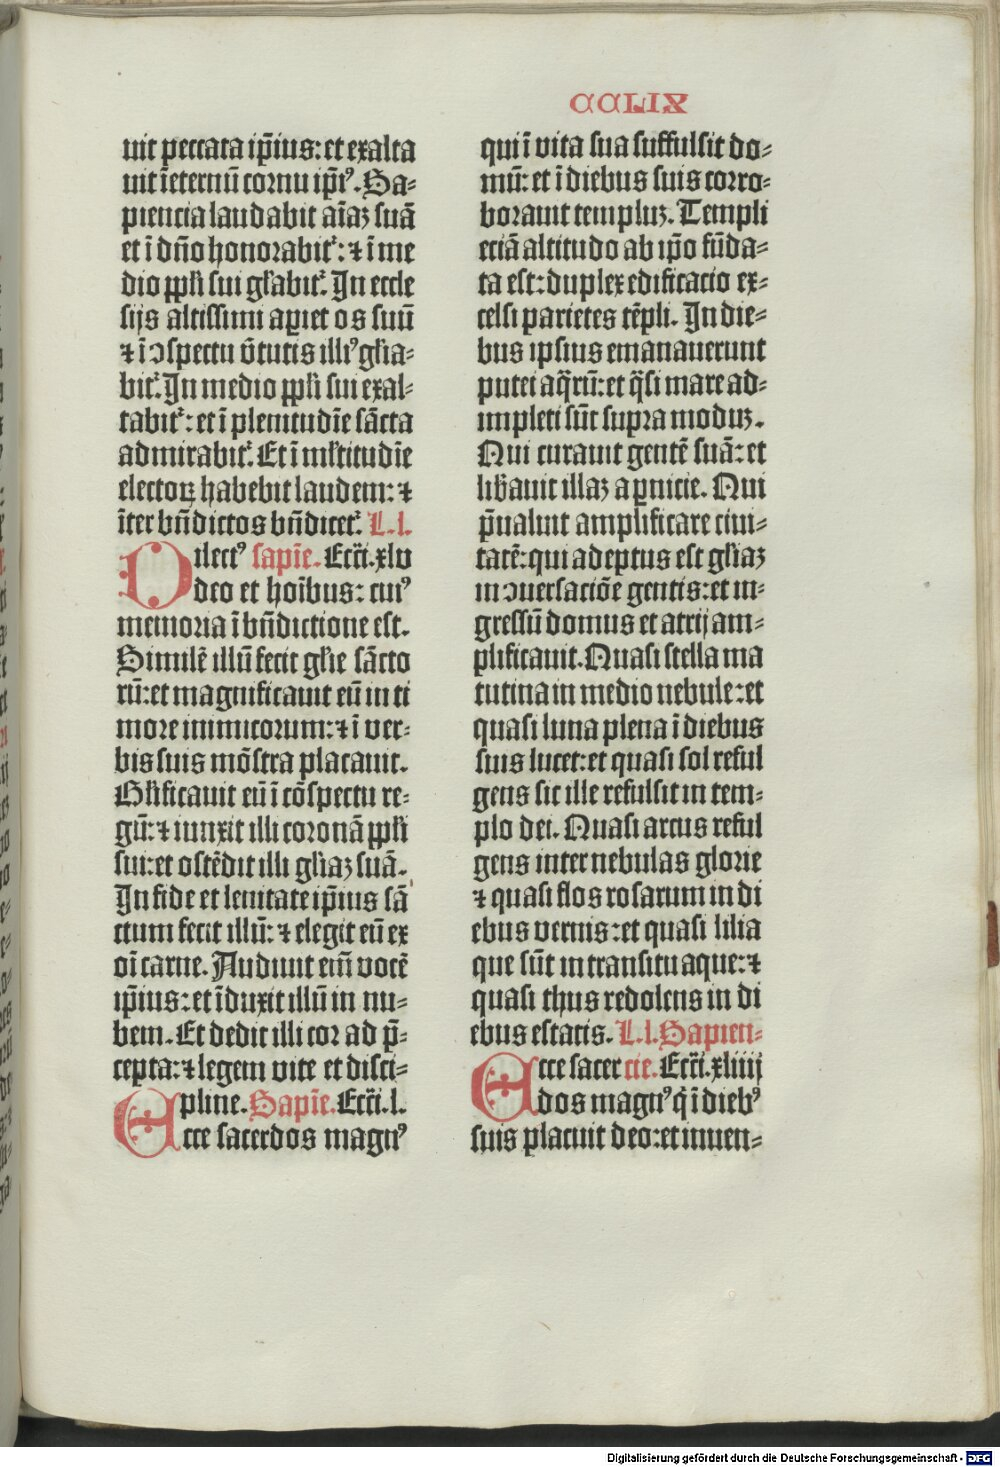 CCLIX
uit peccata ip̄ius: et exalta
uit ī eternū cornu ip̄iꝰ. Sa⸗
piencia laudabit aīaz suā
et ī dn̄o honorabit᷑: ⁊ ī me
dio pp̄li sui gl̄abit᷑. In eccle
sijs altissimi aꝑiet os suū
⁊ ī ↄspectu v̄tutis illiꝰ gl̄ia⸗
bit᷑. In medio pp̄li sui exal⸗
tabit᷑: et ī plenitudīe sācta
admirabit᷑. Et ī ml̄titudīe
electoꝝ habebit laudem: ⁊
īter bn̄dictos bn̄dicet᷑. L. l.
Dilectꝰ sapīe. Ecc̄i. xlv
deo et hoībus: cuiꝰ
memoria ī bn̄dictione est.
Similē illū fecit gl̄ie sācto
rū: et magnificauit eū in ti
more inimicorum: ⁊ ī ver⸗
bis suis mōstra placauit.
Gl̄ificauit eū ī cōspectu re⸗
gū: ⁊ iunxit illi coronā pp̄li
sui: et ostēdit illi gl̄iaz suā.
In fide et lenitate ip̄ius sā
ctum fecit illū: ⁊ elegit eū ex
oī carne. Audiuit em̄ vocē
ip̄ius: et īduxit illū in nu⸗
bem. Et dedit illi cor ad p̄⸗
cepta: ⁊ legem vite et disci⸗
pline. Sapīe. Ecc̄i. l.
Ecce sacerdos magnꝰ
qui ī vita sua suffulsit do⸗
mū: et ī diebus suis corro⸗
borauit templuz. Templi
eciā altitudo ab ip̄o fūda⸗
ta est: duplex edificacio ex⸗
celsi parietes tēpli. In die⸗
bus ipsius emanauerunt
putei aq̄rū: et q̄si mare ad⸗
impleti sūt supra moduz.
Qui curauit gentē suā: et
lib̄auit illaz a ꝑnicie. Qui
p̄ualuit amplificare ciui⸗
tatē: qui adeptus est gl̄iaz
in ↄuersaciōe gentis: et in⸗
gressū domus et atrij am⸗
plificauit. Quasi stella ma
tutina in medio nebule: et
quasi luna plena ī diebus
suis lucet: et quasi sol reful
gens sic ille refulsit in tem⸗
plo dei. Quasi arcus reful
gens inter nebulas glorie
⁊ quasi flos rosarum in di
ebus vernis: et quasi lilia
que sūt in transitu aque: ⁊
quasi thus redolens in di
ebus estatis. L. l. Sapien⸗
Ecce sacer cie. Ecc̄i. xliiij
dos magnꝰ q̇ ī diebꝰ
suis placuit deo: et inuen⸗
Digitalisierung gefördert durch die Deutsche Forschungsgemeinschaft - DFG